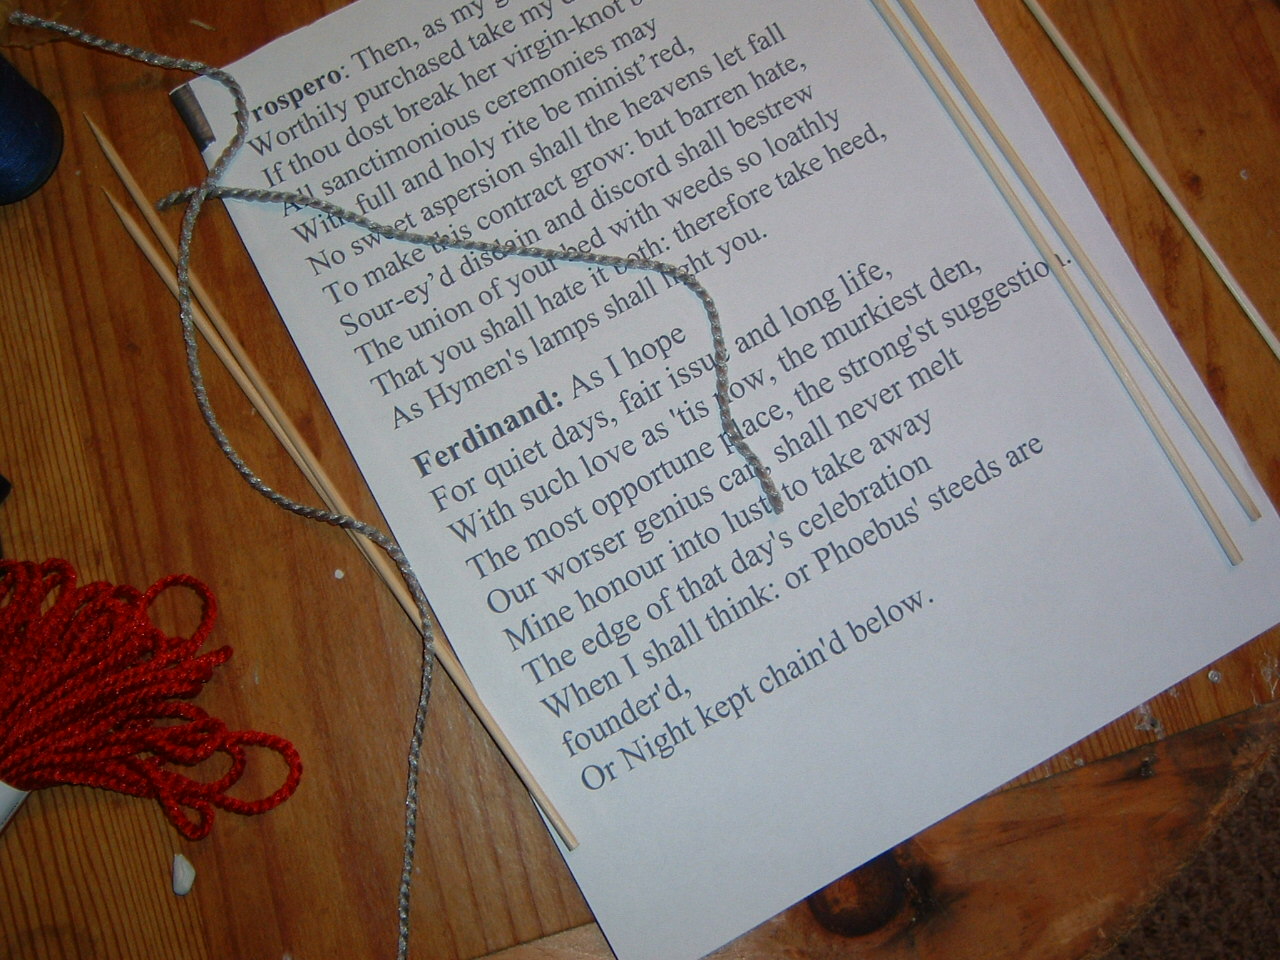 rospero: Then, as my
Worthily purchased take my
If thou dost break her virgin-knot
All sanctimonious ceremonies may
With full and holy rite be minist'red,
No sweet aspersion shall the heavens let fall
To make this contract grow: but barren hate,
Sour-ey'd disdain and discord shall bestrew
The union of your bed with weeds so loathly
That you shall hate it both: therefore take heed,
As Hymen's lamps shall light you.
Ferdinand: As I hope
For quiet days, fair issue and long life,
With such love as 'tis now, the murkiest den,
The most opportune place, the strong'st suggestion.
Our worser genius can, shall never melt
Mine honour into lust, to take away
The edge of that day's celebration
When I shall think: or Phoebus' steeds are
founder'd,
Or Night kept chain'd below.